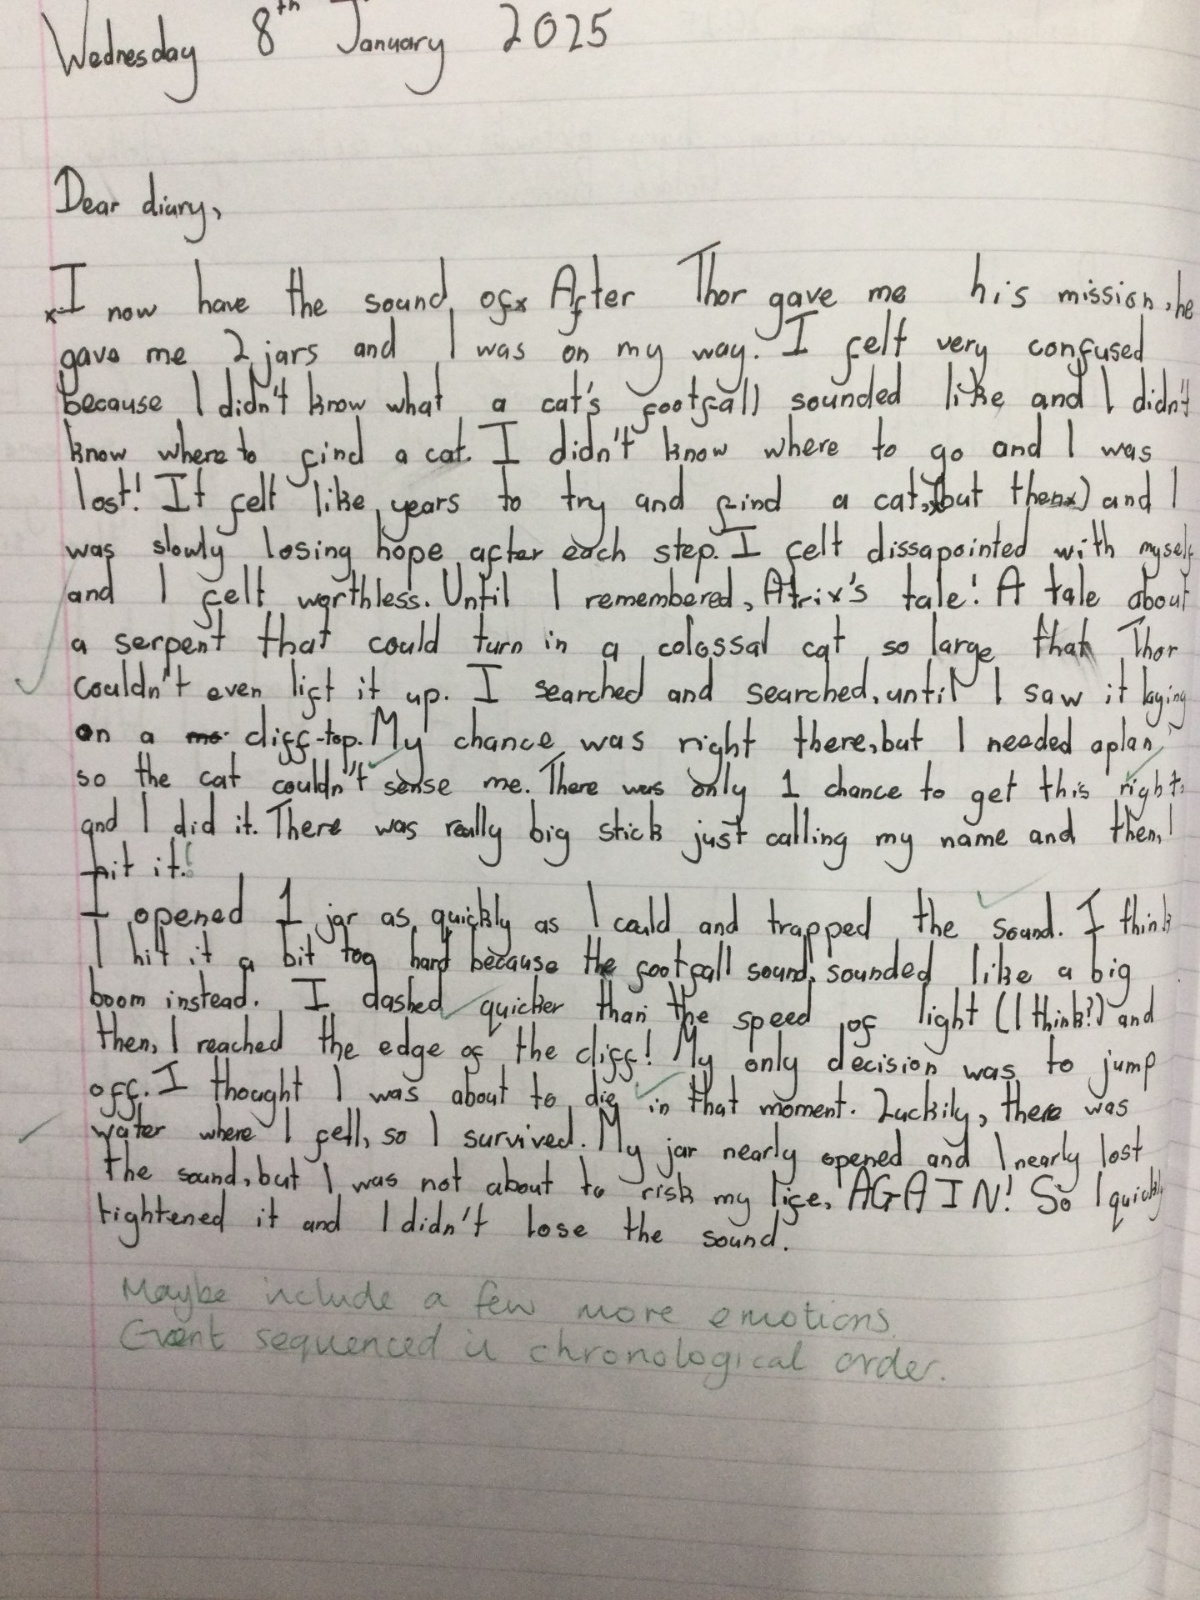 Wednesday 8th January 2025
Dear diary,
x I now have the sound ofx After Thor gave me his mission, he
gave me 2 jars and I was on my way. I felt very confused
because I didn't know what a cat's footfall sounded like and I didn't
know where to find a cat. I didn't know where to go and I was
lost! It felt like years to try and find a cat, (but then x) and I
was slowly losing hope after each step. I felt dissapointed with myself
and I felt worthless. Until I remembered, Atrix's tale! A tale about
a serpent that could turn in a colossal cat so large that Thor
couldn't even lift it up. I searched and searched, until I saw it laying
on a mo cliff-top. My chance was right there, but I needed a plan,
so the cat couldn't sense me. There was only 1 chance to get this right,
and I did it. There was really big stick just calling my name and then, I
hit it!
I opened 1 jar as quickly as I could and trapped the sound. I think
I hit it a bit too hard because the footfall sound, sounded like a big
boom instead. I dashed quicker than the speed of light (I think?) and
then, I reached the edge of the cliff! My only decision was to jump
off. I thought I was about to die in that moment. Luckily, there was
water where I fell, so I survived. My jar nearly opened and I nearly lost
the sound, but I was not about to risk my life, AGAIN! So I quickly
tightened it and I didn't lose the sound.
Maybe include a few more emotions.
Event sequenced in chronological order.